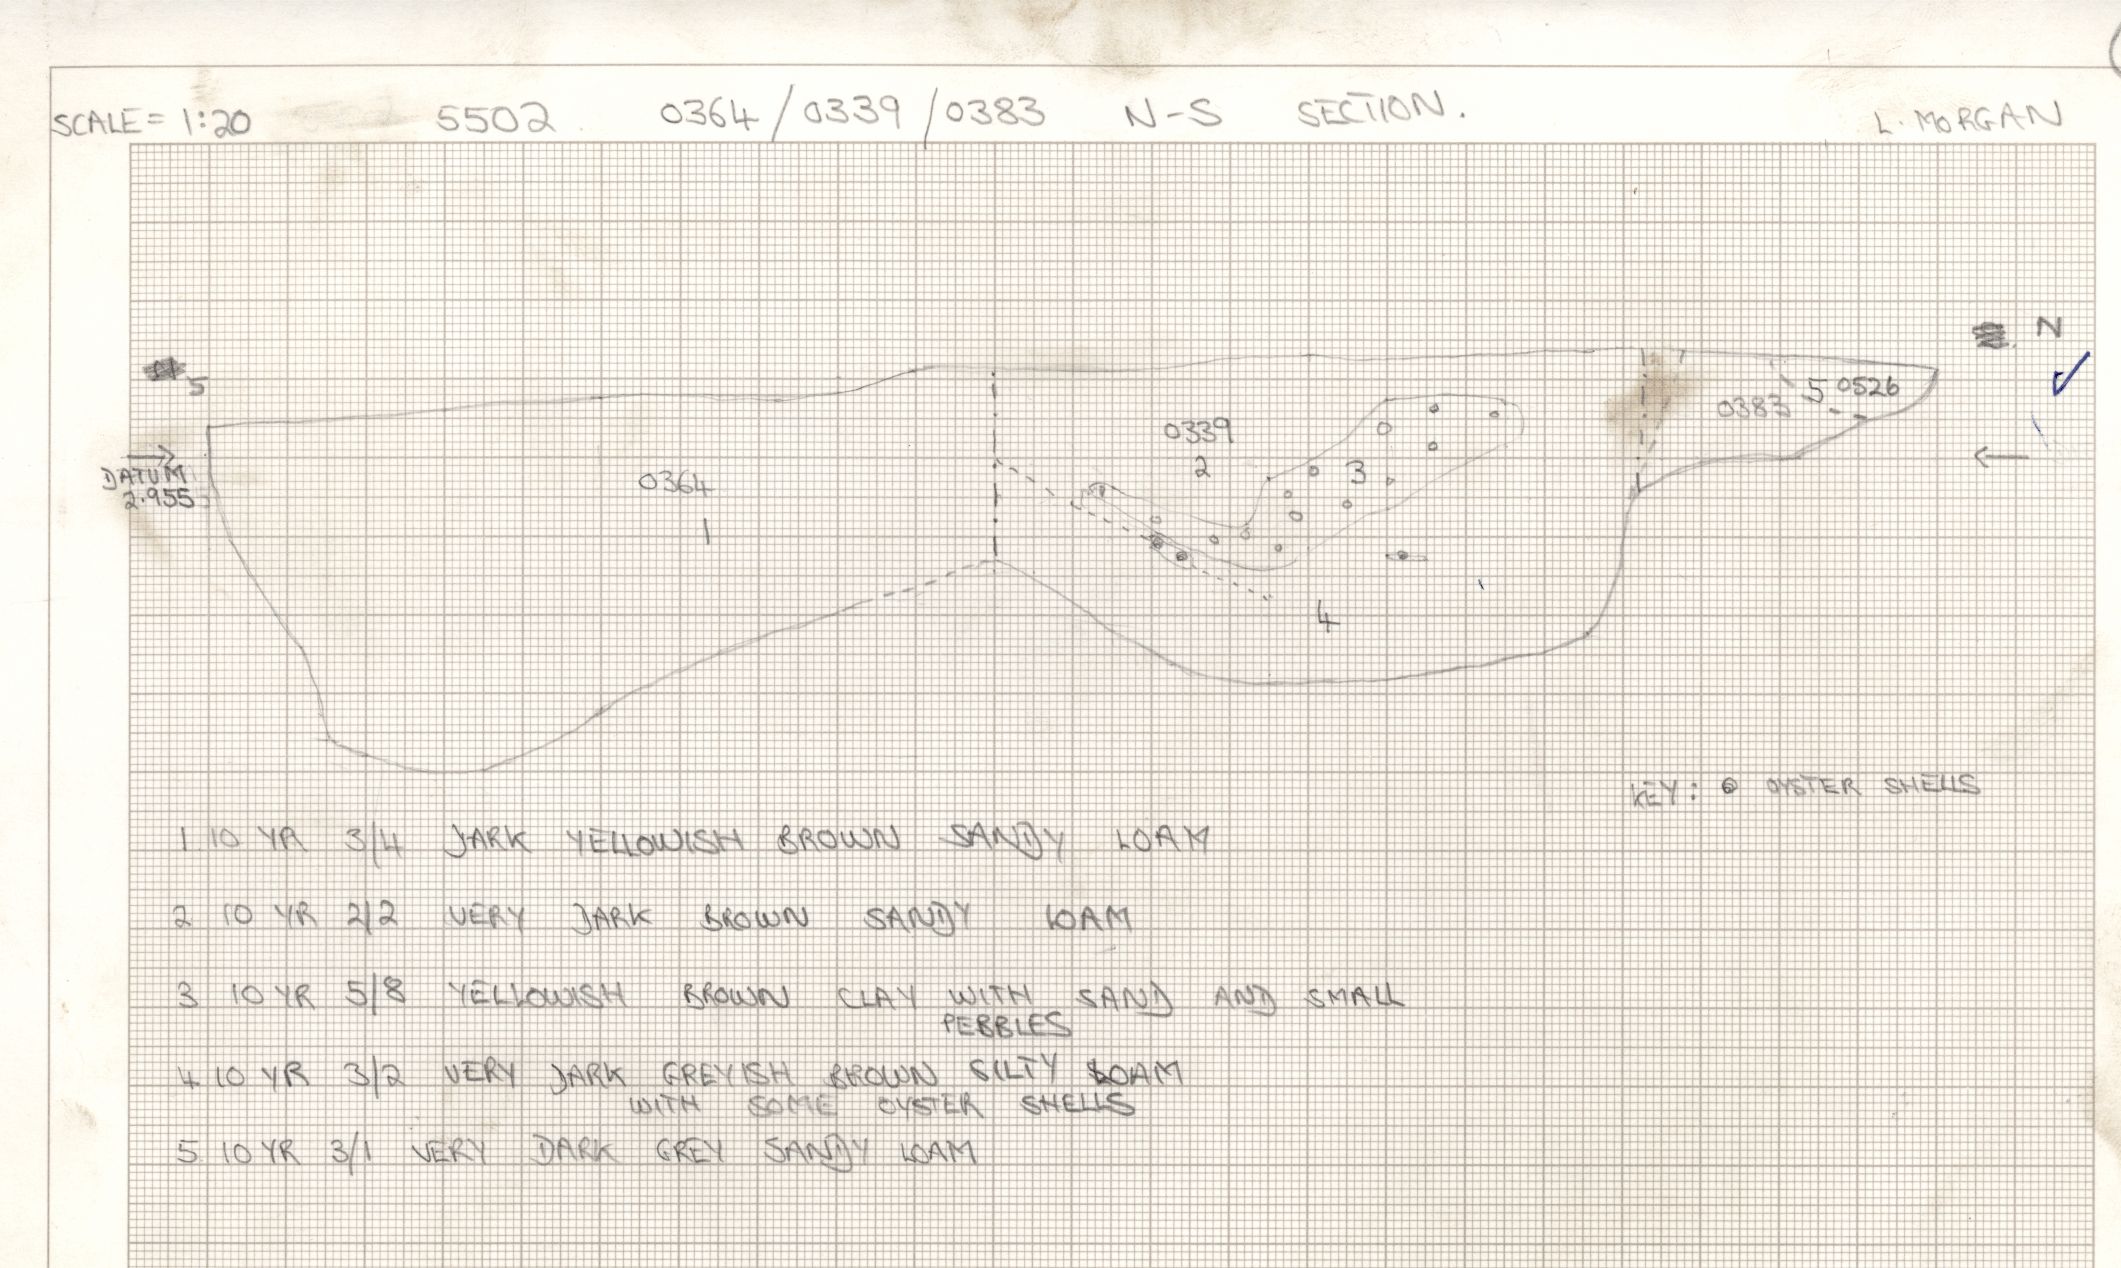 SCALE = 1:20 5502 0364/0339/0383 N-S SECTION. L. MORGAN
N
5
5 0526
0383
0339
2
3
DATUM
2.955
0364
1
4
KEY: OYSTER SHELLS
1 10 YR 3/4 DARK YELLOWISH BROWN SANDY LOAM
2 10 YR 2/2 VERY DARK BROWN SANDY LOAM
3 10 YR 5/8 YELLOWISH BROWN CLAY WITH SAND AND SMALL
PEBBLES
4 10 YR 3/2 VERY DARK GREYISH BROWN SILTY LOAM
WITH SOME OYSTER SHELLS
5 10 YR 3/1 VERY DARK GREY SANDY LOAM